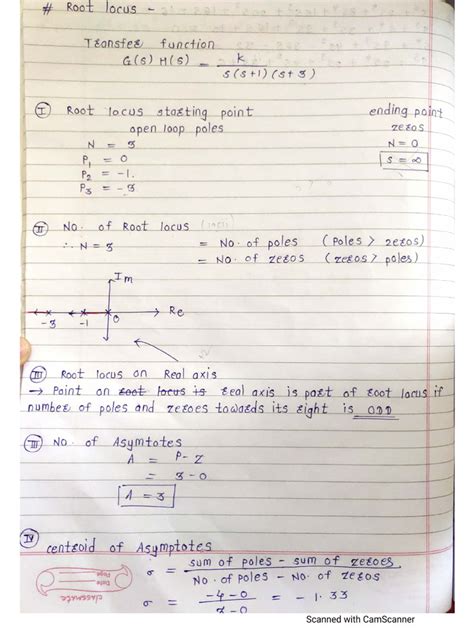 # Root locus -
Transfer function
G(s) H(s) = k / s(s+1)(s+3)
I Root locus starting point ending point
open loop poles zeros
N = 3 N = 0
P1 = 0 s = ∞
P2 = -1.
P3 = -3
II No. of Root locus (loci)
∴ N = 3 = No. of poles (Poles > zeros)
= No. of zeros (zeros > poles)
Im
Re
-3 -1 0
III Root locus on Real axis
→ Point on root locus is real axis is part of root locus if
number of poles and zeroes towards its right is ODD
III No. of Asymtotes
A = P-Z
= 3-0
A = 3
IV centroid of Asymptotes
σ = sum of poles - sum of zeroes / No. of poles - No. of zeros
σ = -4-0 / 3-0 = -1.33
classmate
Date
Page
Scanned with CamScanner